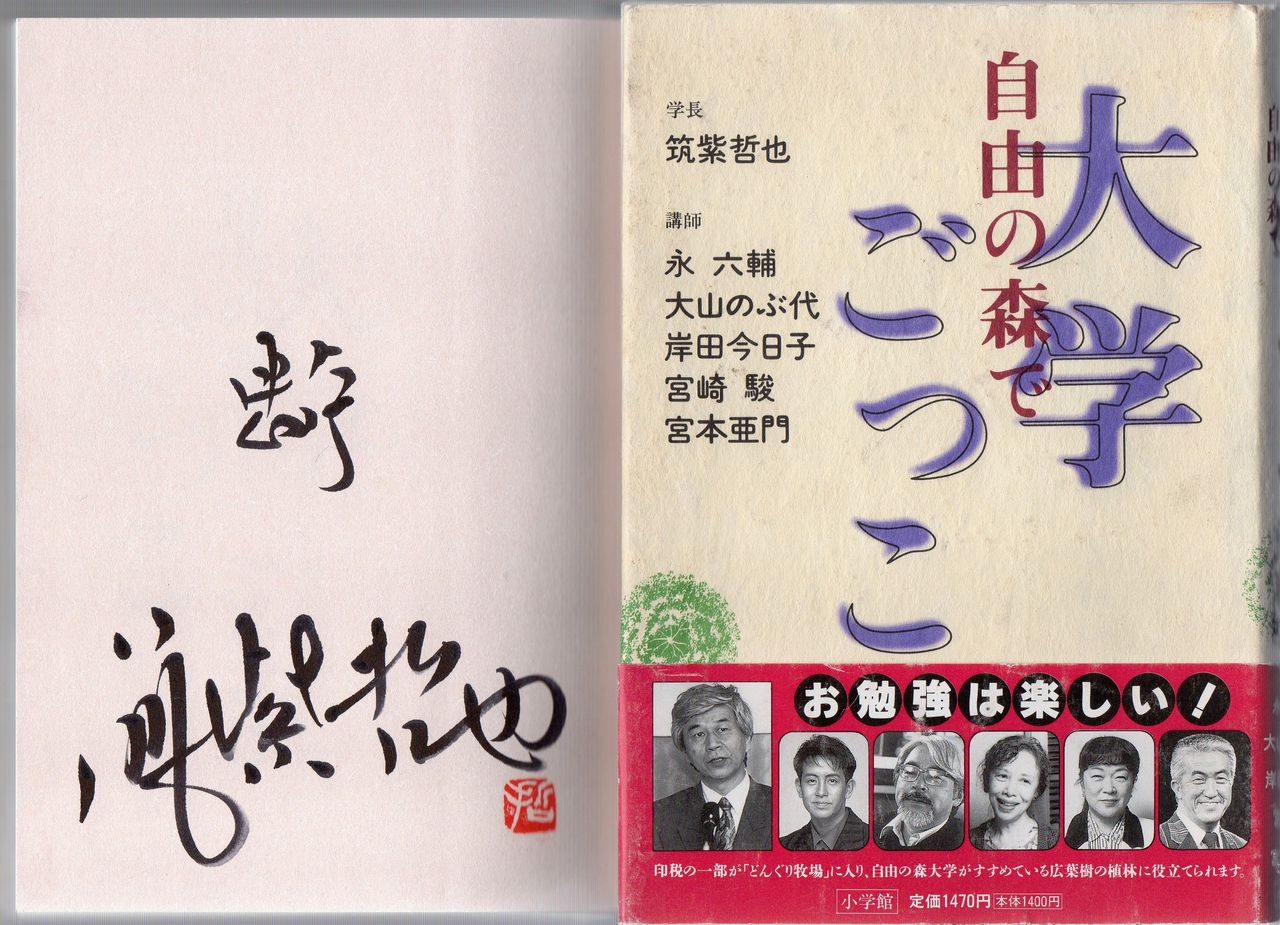 筑紫哲也
哲
自由の森で
大学
ごっこ
学長
筑紫哲也
講師
永 六輔
大山のぶ代
岸田今日子
宮崎 駿
宮本亜門
お勉強は楽しい!
印税の一部が「どんぐり牧場」に入り、自由の森大学がすすめている広葉樹の植林に役立てられます。
小学館 定価1470円 本体1400円
自由の森で
大
岸